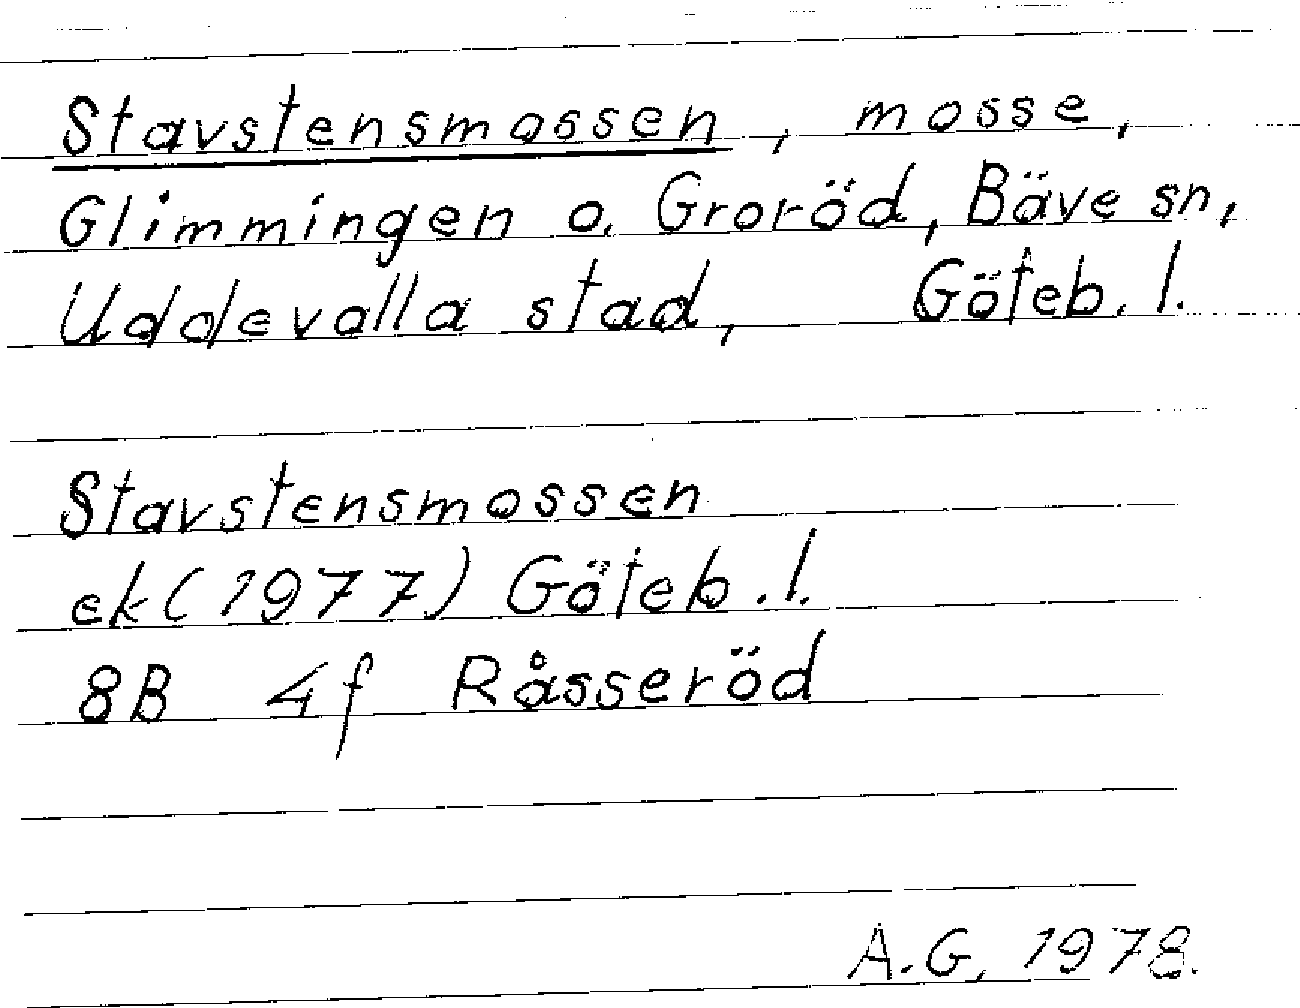 Stavstensmossen, mosse,
Glimmingen o. Groröd, Bäve sn,
Uddevalla stad, Göteb. l.
Stavstensmossen
ek (1977) Göteb. l.
8B 4f Råsseröd
A.G. 1978.